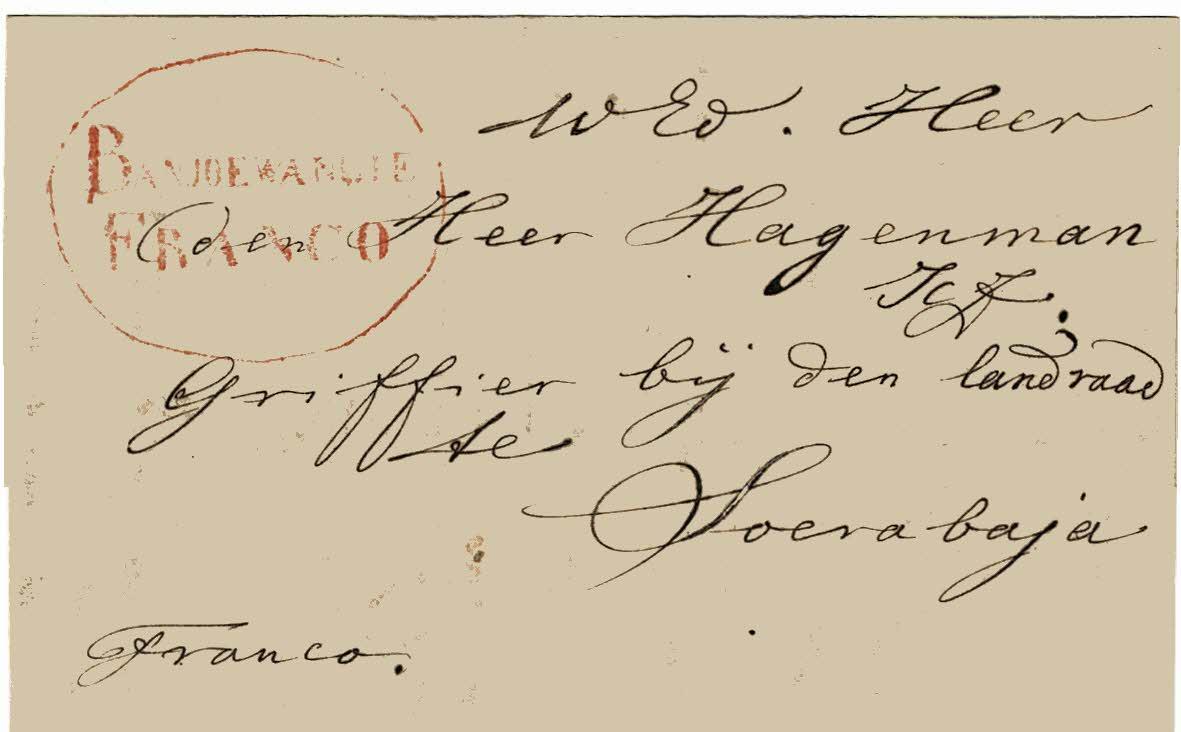 WEd. Heer
BANJOEWANGIE
FRANCO
den Heer Hagenman
Griffier bij den landraad
te
Soerabaja
Franco.